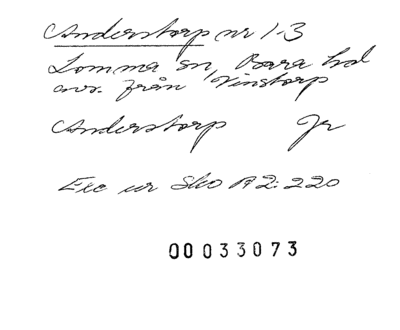 Anderstorp nr 1-3
Lomma sn, Bara hd
avs. från Vinstorp
Anderstorp Jr
Exc ur Sko A2:220
00033073